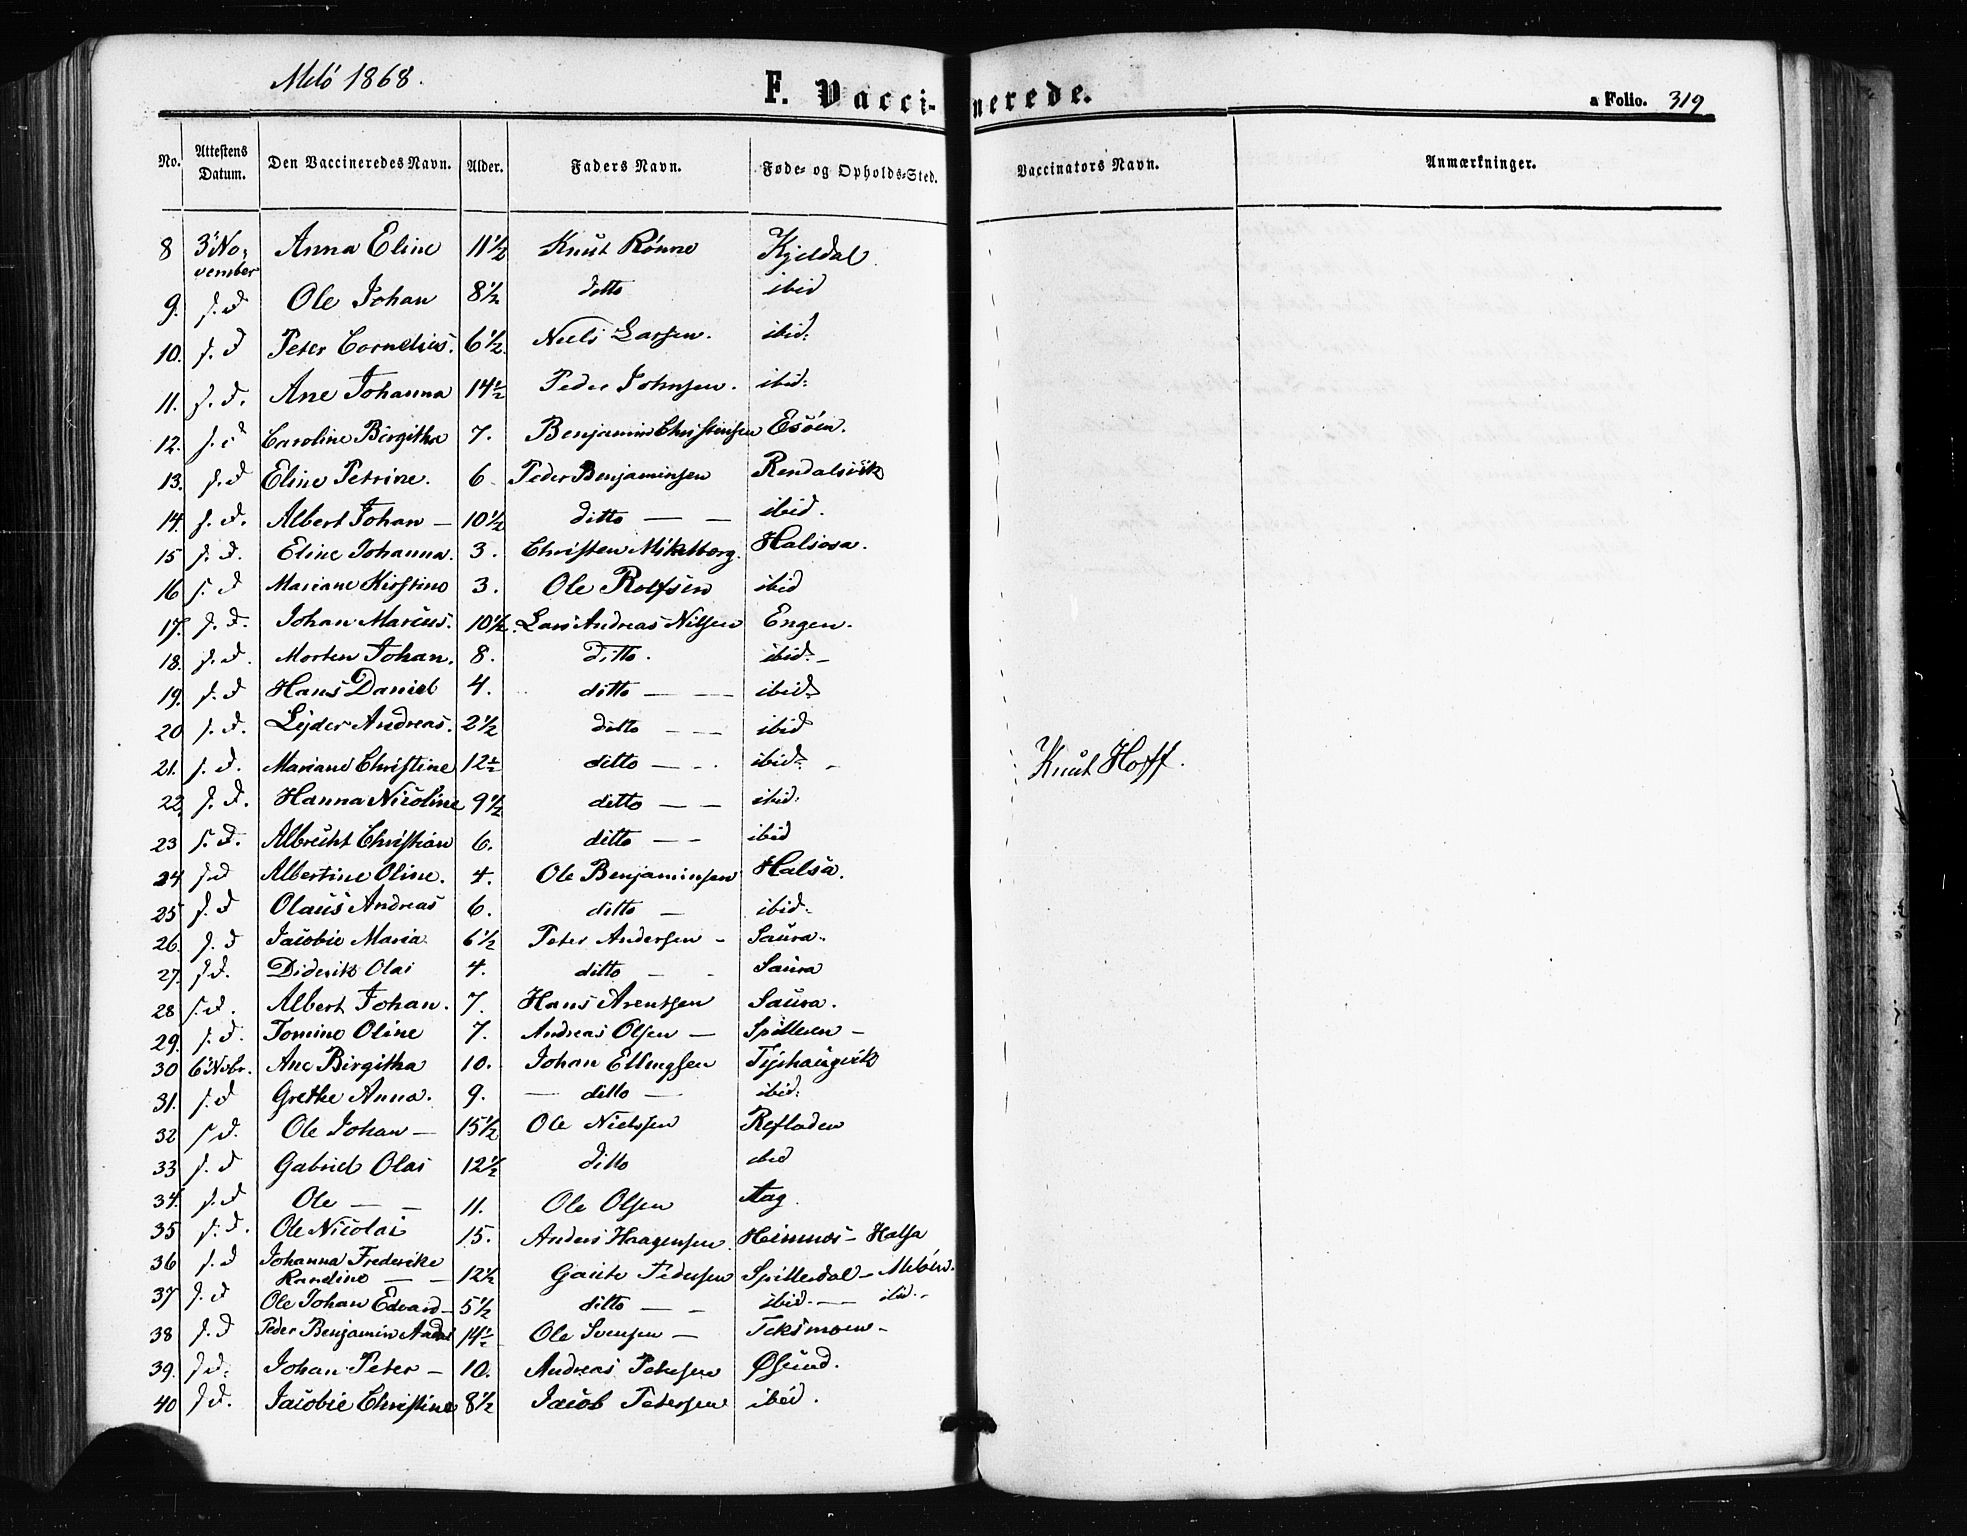 Melö 1868.
F. Vaccinerede.
a Folio. 319
No. Attestens Datum. Den Vaccineredes Navn. Alder. Faders Navn. Føde- og Opholds-Sted. Vaccinators Navn. Anmærkninger.
8 3 November Anna Eline 11 1/2 Knut Rönne Kjeldal
9. s. d Ole Johan 8 1/2 ditto ibid
10. s. d Peter Cornelius. 6 1/2 Niels Larsen. ibid:
11. s. d. Ane Johanna 14 1/2 Peder Johnsen. ibid:
12. s. d Caroline Birgitha 7. Benjamin Christensen Esöen.
13. s. d Eline Petrine. 6 Peder Benjaminsen Rendalsvik
14. s. d. Albert Johan — 10 1/2 ditto — — ibid.
15 s. d. Eline Johanna. 3. Christen Mikelborg. Halsosa.
16 s. d Mariane Kirstine 3. Ole Rolfsen ibid
17. s. d. Johan Marius. 10 1/2. Lars Andreas Nilsen Engen.
18. s. d. Morten Johan. 8. ditto. ibid. –
19. s. d Hans Daniel 4. ditto — — ibid
20 s. d. Lejder Andreas. 2 1/2 ditto — — ibid
21. s. d. Mariane Christine 12 1/2 ditto — - . ibid. – Knut Hoff.
22 s. d. Hanna Nicoline 9 1/2 ditto — — ibid.
23 s. d. Albrecht Christian 6. ditto — - ibid
24 s. d Albertine Oline. 4. Ole Benjaminsen Halsa.
25 s. d Olaus Andreas 6. ditto — ibid.
26. s. d Jacobie Maria. 6 1/2 Peter Andersen – Saura.
27. s d. Diderik Olai 4. ditto — - Saura
28 s. d. Albert Johan. 7. Hans Arentsen Saura.
29. s. d. Tomine Oline 7. Andreas Olsen — Spilderen –
30 6 Novbr. Ane Birgitha 10. Johan Ellingsen Tjehaugvik
31. s. d Grethe Anna. 9. — ditto — ibid:
32 s d. Ole Johan — 15 1/2 Ole Nielssen Refladen
33 s. d Gabriel Olai 12 1/2 ditto ibid
34. s. d Ole — — 11. Ole Olsen Aag
35 s. d. Ole Nicolai 15. Anders Haagensen Heimnes – Halsa
36 s. d Johanna Frederike
Randine — — 12 1/2 Gaute Pedersen Spilderdal – Melöen.
37 s. d Ole Johan Edvard – 5 1/2 ditto — - ibid. — ibid. -
38 s. d Peder Benjamin 14 1/2 Ole Svensen — Teksmoen –
39. s d. Johan Peter – 10. Andreas Petersen Øsund.
40 s d. Jacobie Christine 8 1/2 Jacob Petersen ibid.